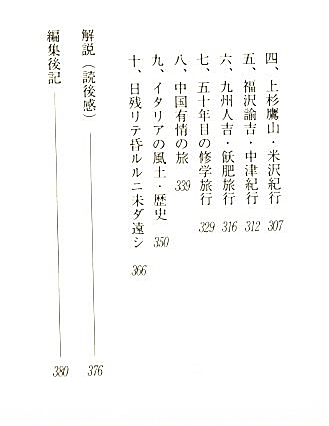 四、上杉鷹山・米沢紀行 307
五、福沢諭吉・中津紀行 312
六、九州人吉・飫肥旅行 316
七、五十年目の修学旅行 329
八、中国有情の旅 339
九、イタリアの風土・歴史 350
十、日残リテ昏ルルニ未ダ遠シ 366
解説（読後感） 376
編集後記 380